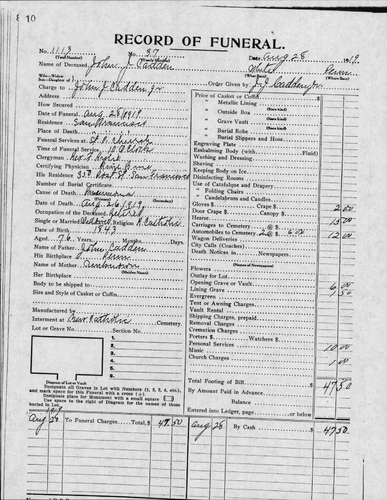 10
RECORD OF FUNERAL.
No. 1113 No. 37 Date Aug 28 1919
(Total Number) (Where Born)
Name of Deceased John J. Cadden White Penn
Charge to John J. Cadden Jr Order Given by
Address
How Secured
Date of Funeral Aug 28 1919
Residence San Francisco
Place of Death
Funeral Services at St. P. Church
Time of Funeral Service 10 O'Clock
Clergyman Rev.
Certifying Physician
His Residence San Francisco
Number of Burial Certificate
Cause of Death
Date of Death Aug 26, 1919
Occupation of the Deceased Retired
Single or Married Religion R. Catholic
Date of Birth 1843
Aged 76 Years Months Days
Name of Father John Cadden
His Birthplace Penn
Name of Mother Unknown
(Maiden Name)
Her Birthplace
Body to be shipped to
Size and Style of Casket or Coffin
Manufactured by
Interment at New Catholic Cemetery.
Lot or Grave No. Section No.
1.
2.
3.
4.
5.
6.
Diagram of Lot or Vault
Designate all Graves in Lot with Numbers (1, 2, 3, 4, etc.), and mark space for this Funeral with a cross (+).
Designate place for Monument with a small square
Use space to right of Diagram for the names of those buried in Lot.
Price of Casket or Coffin
Metallic Lining
(State kind)
Outside Box
(State kind)
Grave Vault
(State kind)
Burial Robe
(State kind)
Burial Slippers and Hose
Engraving Plate
Embalming Body (with Fluid)
Washing and Dressing
Shaving
Keeping Body on Ice
Disinfecting Rooms
Use of Catafalque and Drapery
" Folding Chairs
" Candelabrum and Candles
Gloves $ Crape $ 2.00
Door Crape $ Canopy $
Hearse 15.00
Carriages to Cemetery @ $
Automobiles to Cemetery 2 @ $ 6.00 12.00
Wagon Deliveries
City Calls (Coaches)
Death Notices in Newspapers
(Names of Newspapers)
Flowers
Outlay for Lot
Opening Grave or Vault 6.00
Lining Grave 1.50
Evergreen
Tent or Awning Charges
Vault Rental
Shipping Charges, prepaid
Removal Charges
Cremation Charges
Porters $ Watchers $
Personal Services
Music 10.00
Church Charges 1.00
Total Footing of Bill $ 47.50
By Amount Paid in Advance
Balance $
Entered into Ledger, page or below
1919
Aug 28 To Funeral Charges Total $ 47.50 Aug 28 By Cash $ 47.50